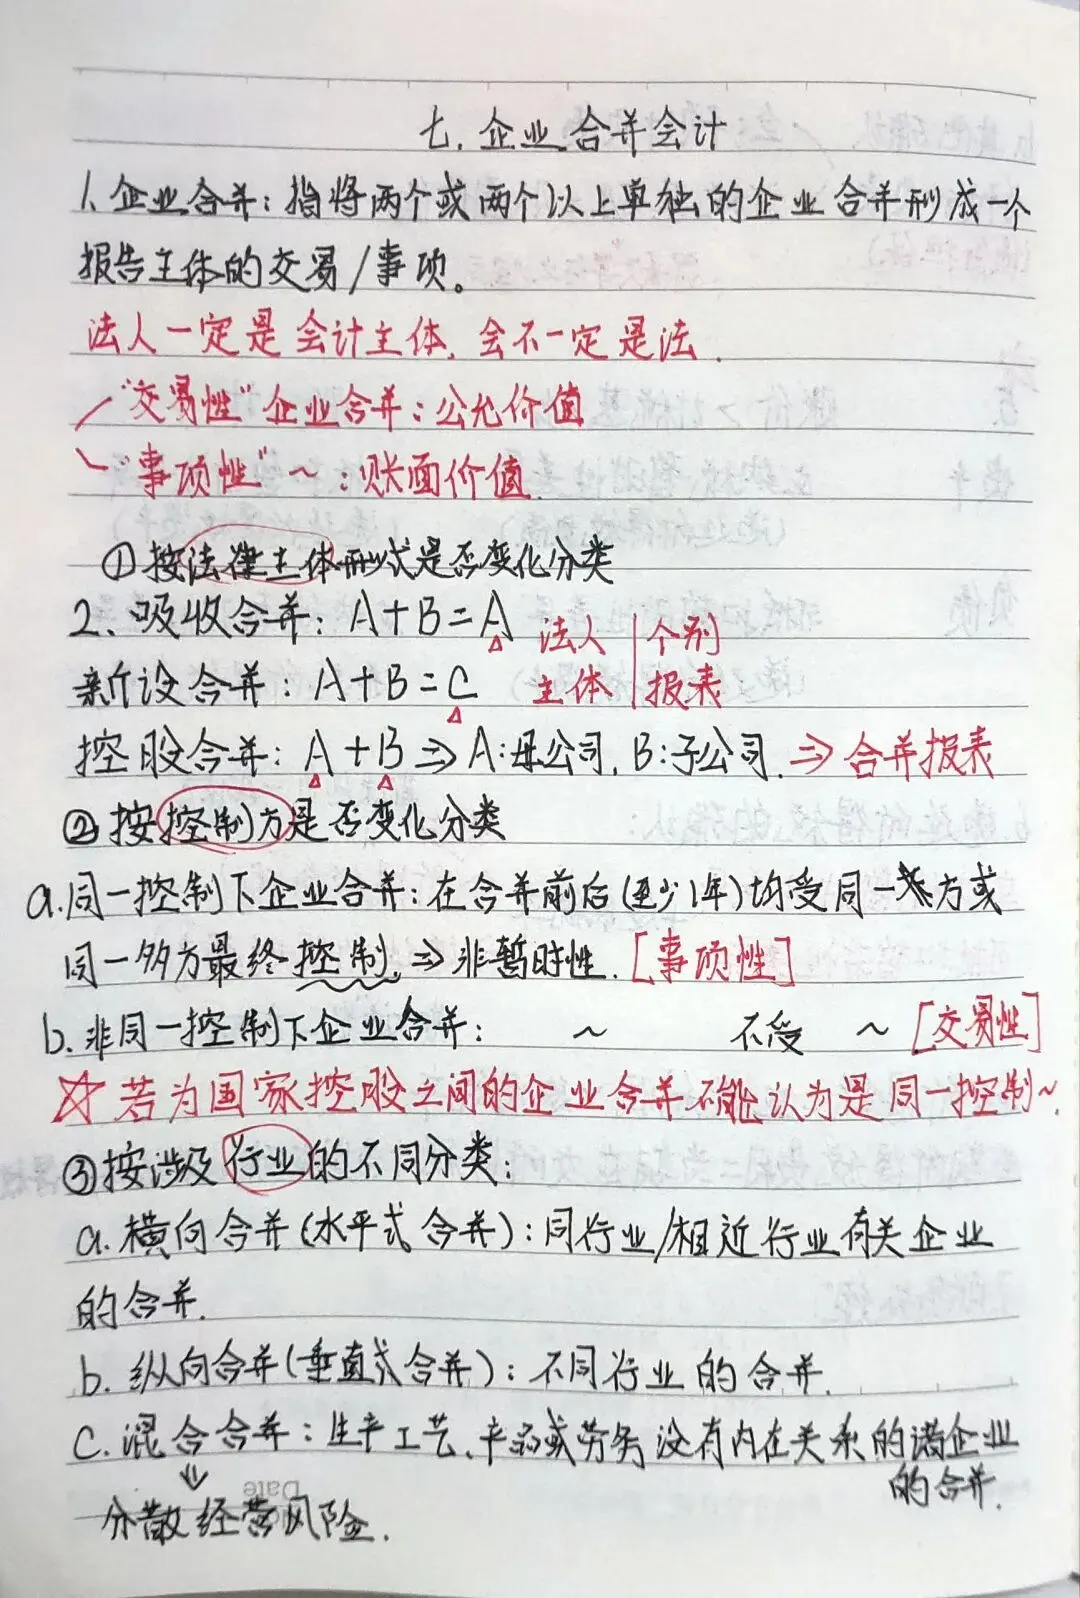 七.企业合并会计
1.企业合并:指将两个或两个以上单独的企业合并形成一个
报告主体的交易/事项。
法人一定是会计主体,会不一定是法.
"交易性"企业合并:公允价值
"事项性"~:账面价值
①按法律主体形式是否变化分类
2.吸收合并:A+B=A 法人 个别
新设合并:A+B=C 主体 报表
控股合并:A+B⇒A:母公司,B:子公司.⇒合并报表
②按控制方是否变化分类
a.同一控制下企业合并:在合并前后(至少1年)均受同一方或
同一多方最终控制,⇒非暂时性.[事项性]
b.非同一控制下企业合并: ~ 不受 ~ [交易性]
☆若为国家控股之间的企业合并不能认为是同一控制~.
③按涉及行业的不同分类:
a.横向合并(水平式合并):同行业/相近行业有关企业
的合并.
b.纵向合并(垂直式合并):不同行业的合并.
c.混合合并:生产工艺、产品或劳务没有内在关系的诸企业
的合并.
分散经营风险.
Date